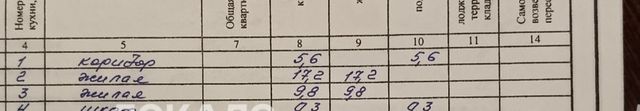 Номер
кухни,
Общая
кварти
к
ж
по
лодж
терр
клад
Само
возве
перес
4 5 7 8 9 10 11 14
1 коридор 5,6 5,6
2 жилая 17,2 17,2
3 жилая 9,8 9,8
4 шкаф 0,3 0,3